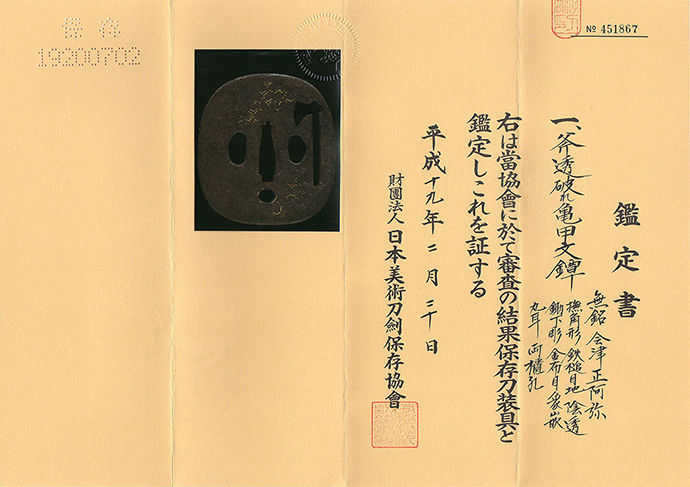 № 451867
鑑定書
一、斧透破れ亀甲文鐔
無銘 会津正阿弥
撫角形 鉄槌目地 陰透
鋤下彫 金布目象嵌
丸耳 両櫃孔
右は當協會に於て審査の結果保存刀装具と
鑑定しこれを証する
平成十九年二月二十日
財團法人 日本美術刀劍保存協會
保存
19200702